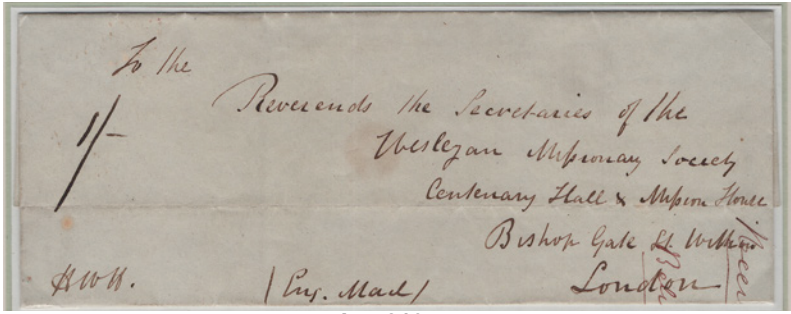 To the
Reverends the Secretaries of the
1/-
Wesleyan Missionary Society
Centenary Hall & Mission House
Bishop Gate St. Within
London
H.W.H. (Eng. Mail)